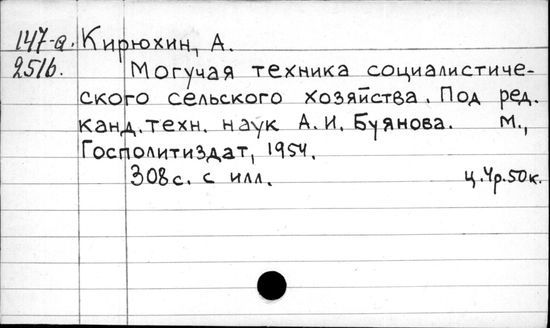 147-а. Кирюхин, А.
2516. Могучая техника социалистиче-
ского сельского хозяйства. Под ред.
канд. техн. наук А.И. Буянова. М.,
Госполитиздат, 1954.
308с. с илл. ц. 4р. 50к.